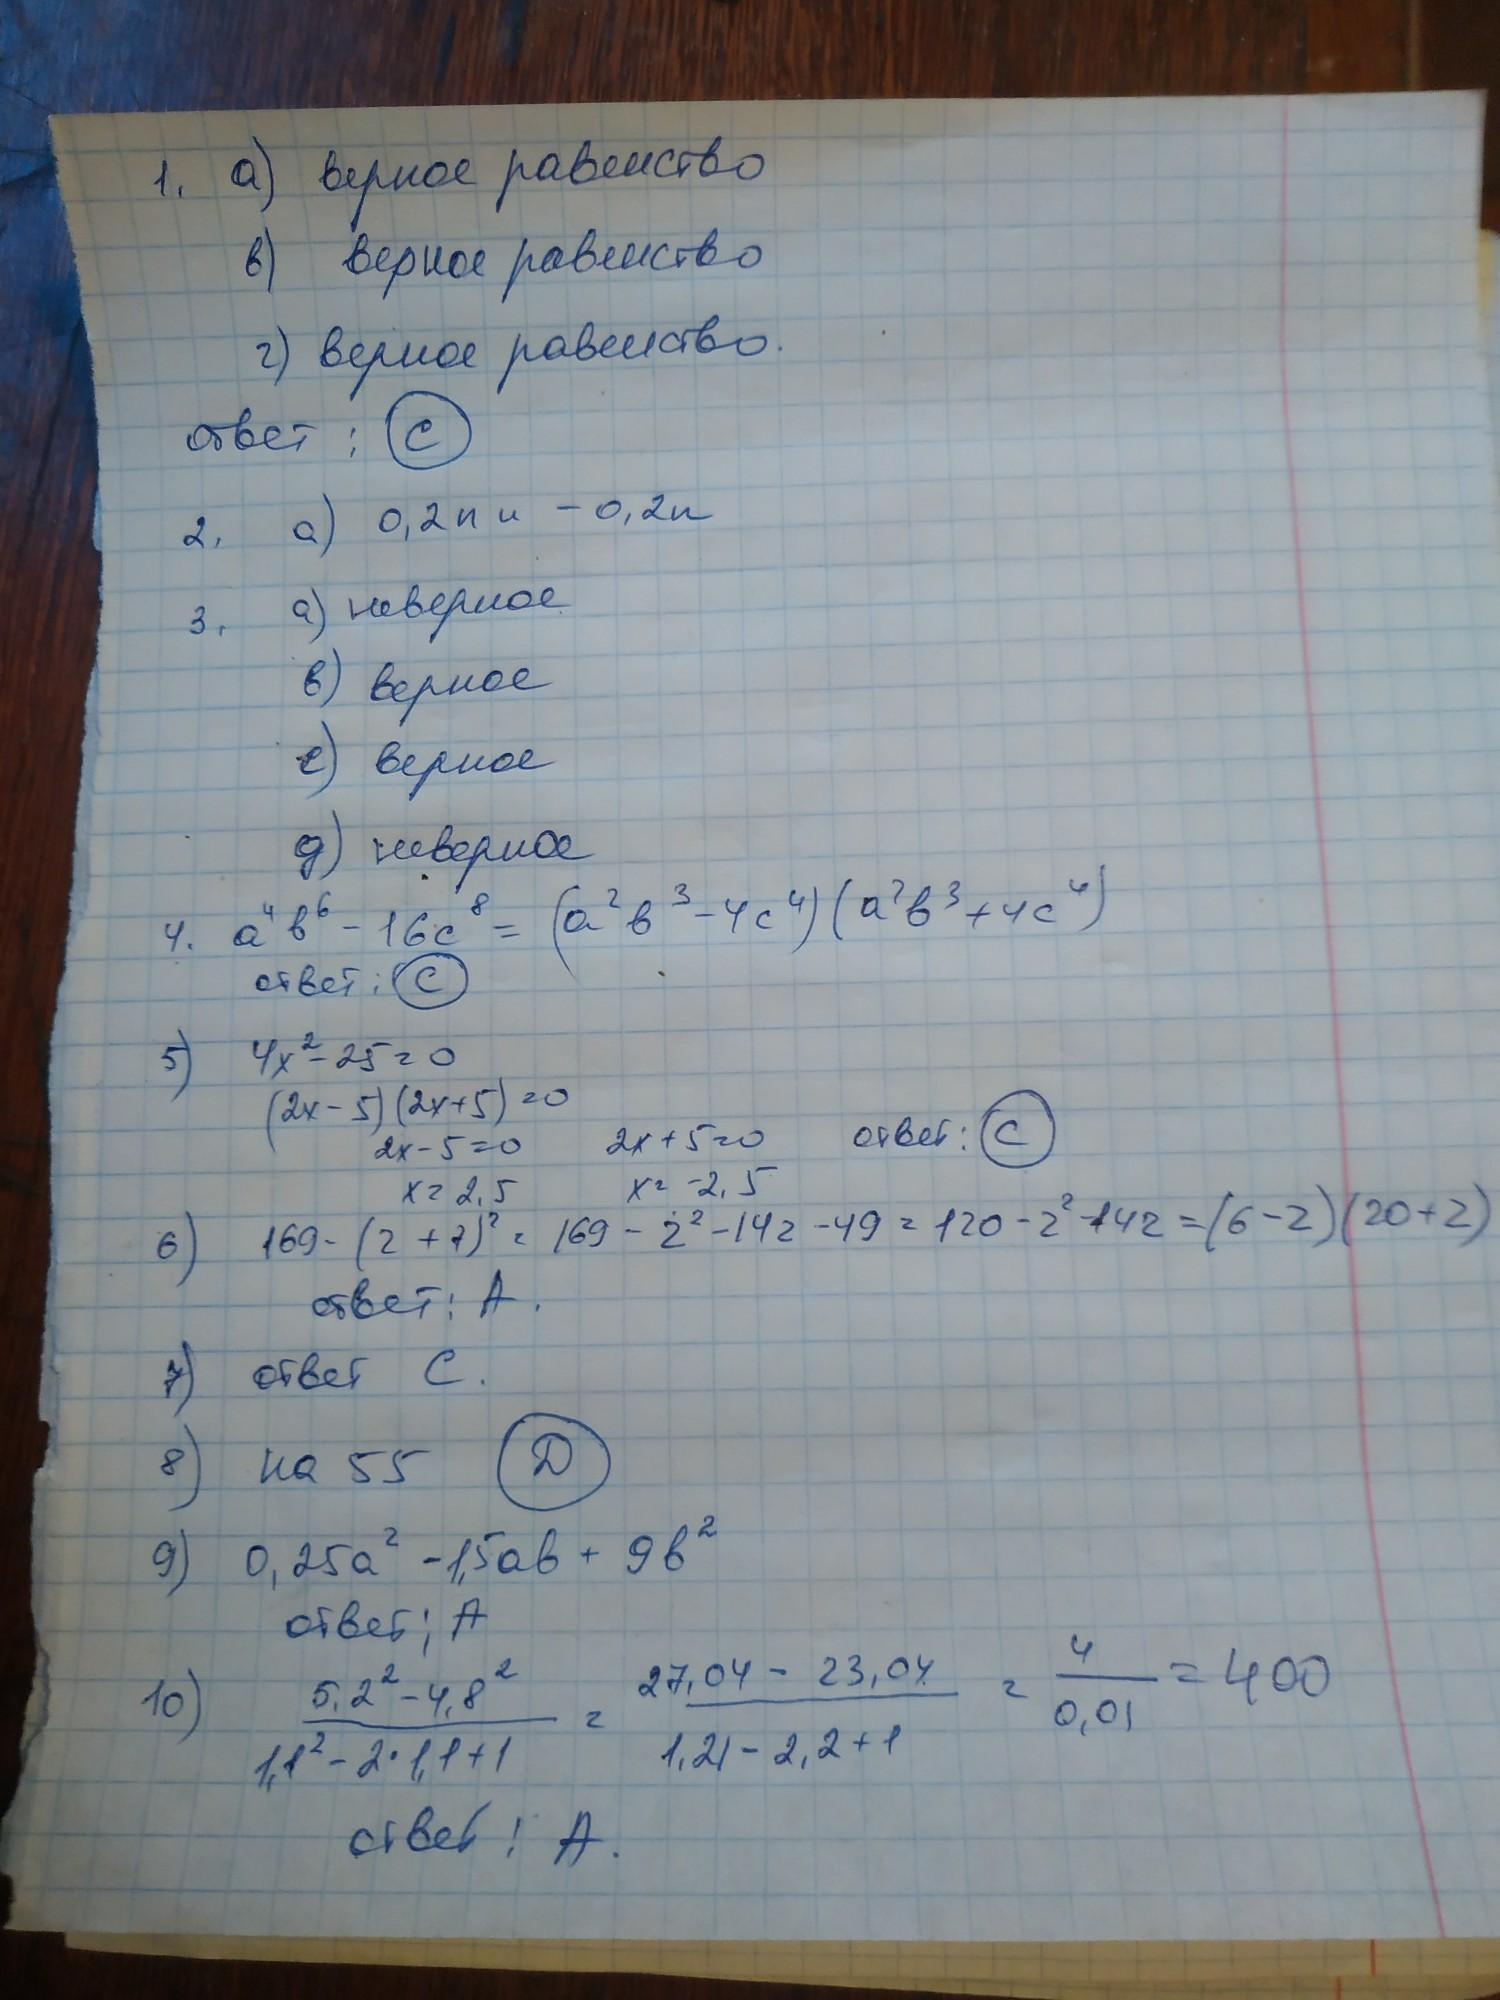 1. а) верное равенство
в) верное равенство
г) верное равенство.
ответ: С
2. а) 0,2n и -0,2n
3. а) неверное
в) верное
с) верное
д) неверное
4. a⁴b⁶ - 16c⁸ = (a²b³ - 4c⁴)(a²b³ + 4c⁴)
ответ: С
5) 4x² - 25 = 0
(2x - 5)(2x + 5) = 0
2x - 5 = 0 2x + 5 = 0 ответ: С
x = 2,5 x = -2,5
6) 169 - (z + 7)² = 169 - z² - 14z - 49 = 120 - z² - 14z = (6 - z)(20 + z)
ответ: А.
7) ответ С.
8) на 55 D
9) 0,25a² - 1,5ab + 9b²
ответ: А
10) (5,2² - 4,8²)/(1,1² - 2·1,1 + 1) = (27,04 - 23,04)/(1,21 - 2,2 + 1) = 4/0,01 = 400
ответ: А.